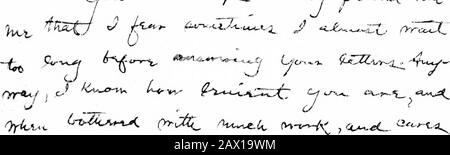 me that I fear sometimes I almost wait
too long before answering your letters. Any-
way, I know how lenient you are, and
when bothered with much work, and cares
alamy
2AX19WM